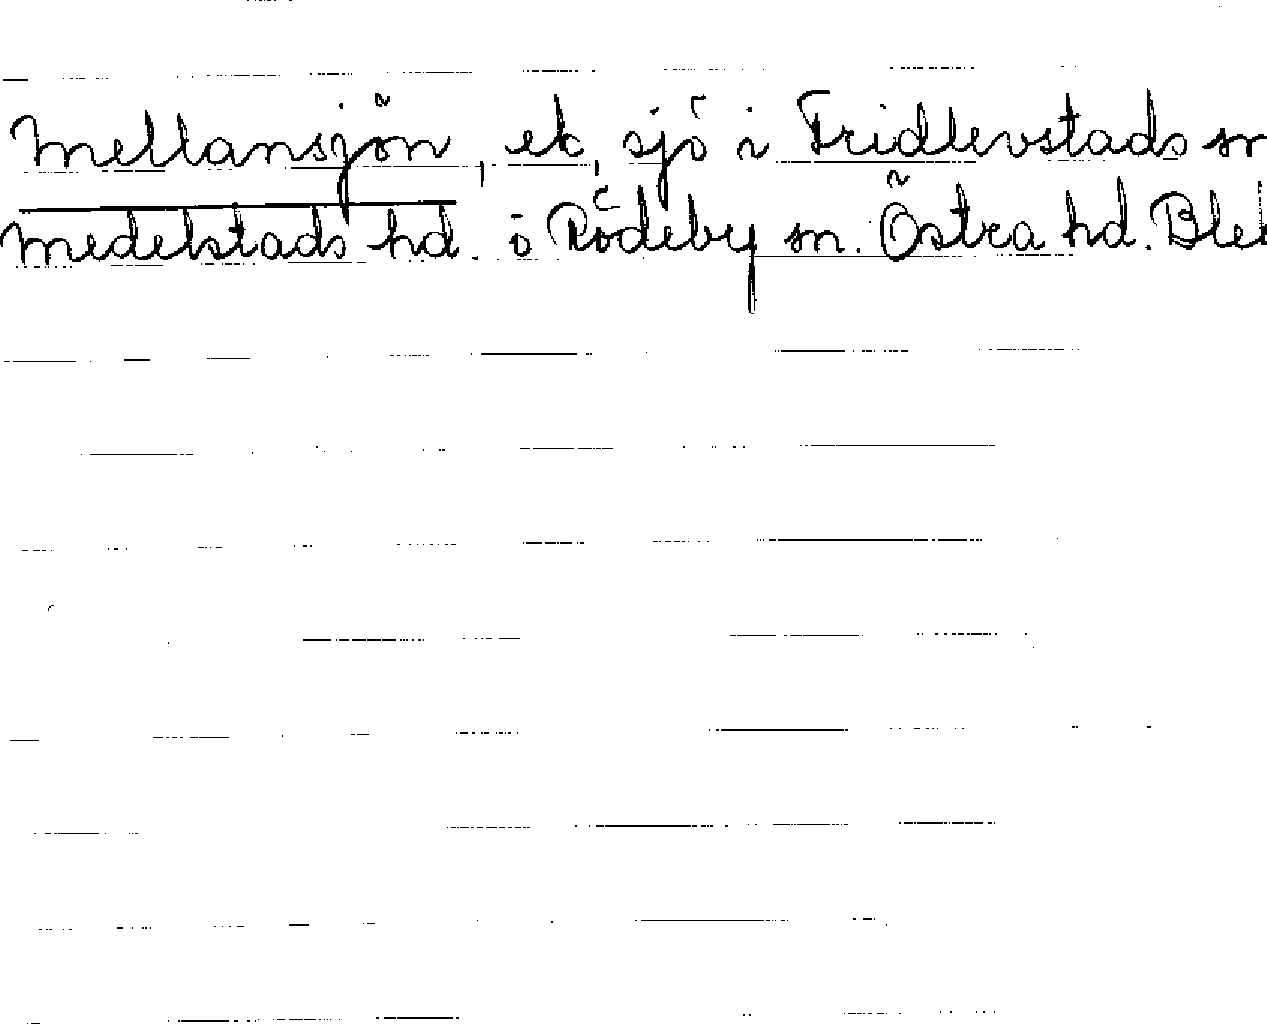 Mellansjön, ek, sjö i Fridlevstads sn
Medelstads hd. o Rödeby sn. Östra hd. Blek